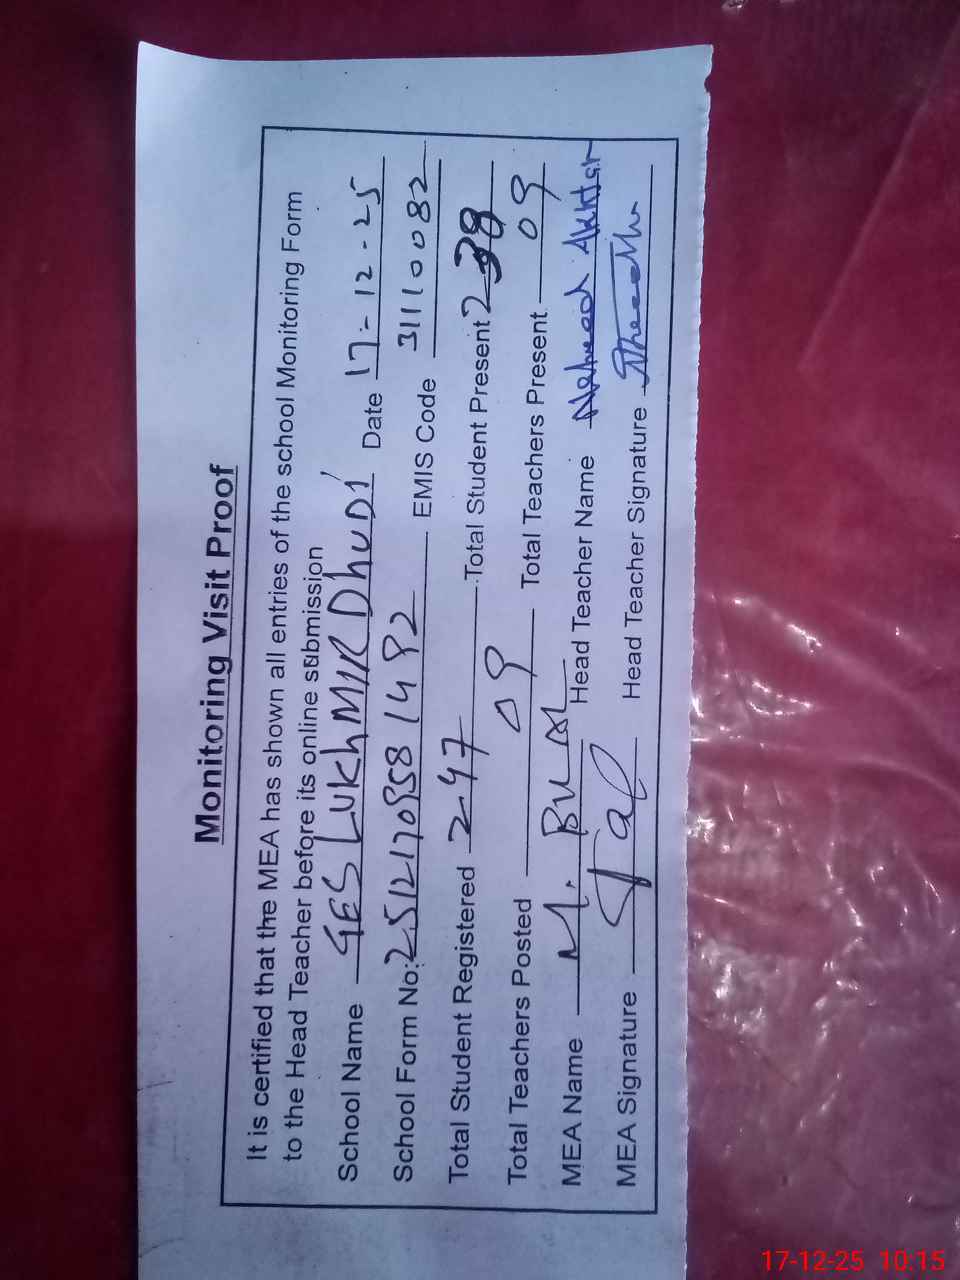 Monitoring Visit Proof
It is certified that the MEA has shown all entries of the school Monitoring Form
to the Head Teacher before its online submission
School Name GES LUKhMIR DhUDI Date 17-12-25
School Form No: 25121709581492 EMIS Code 31110082
Total Student Registered 247 Total Student Present 238
Total Teachers Posted 09 Total Teachers Present 09
MEA Name M. BILAL Head Teacher Name Akhtar
MEA Signature Head Teacher Signature
17-12-25 10:15